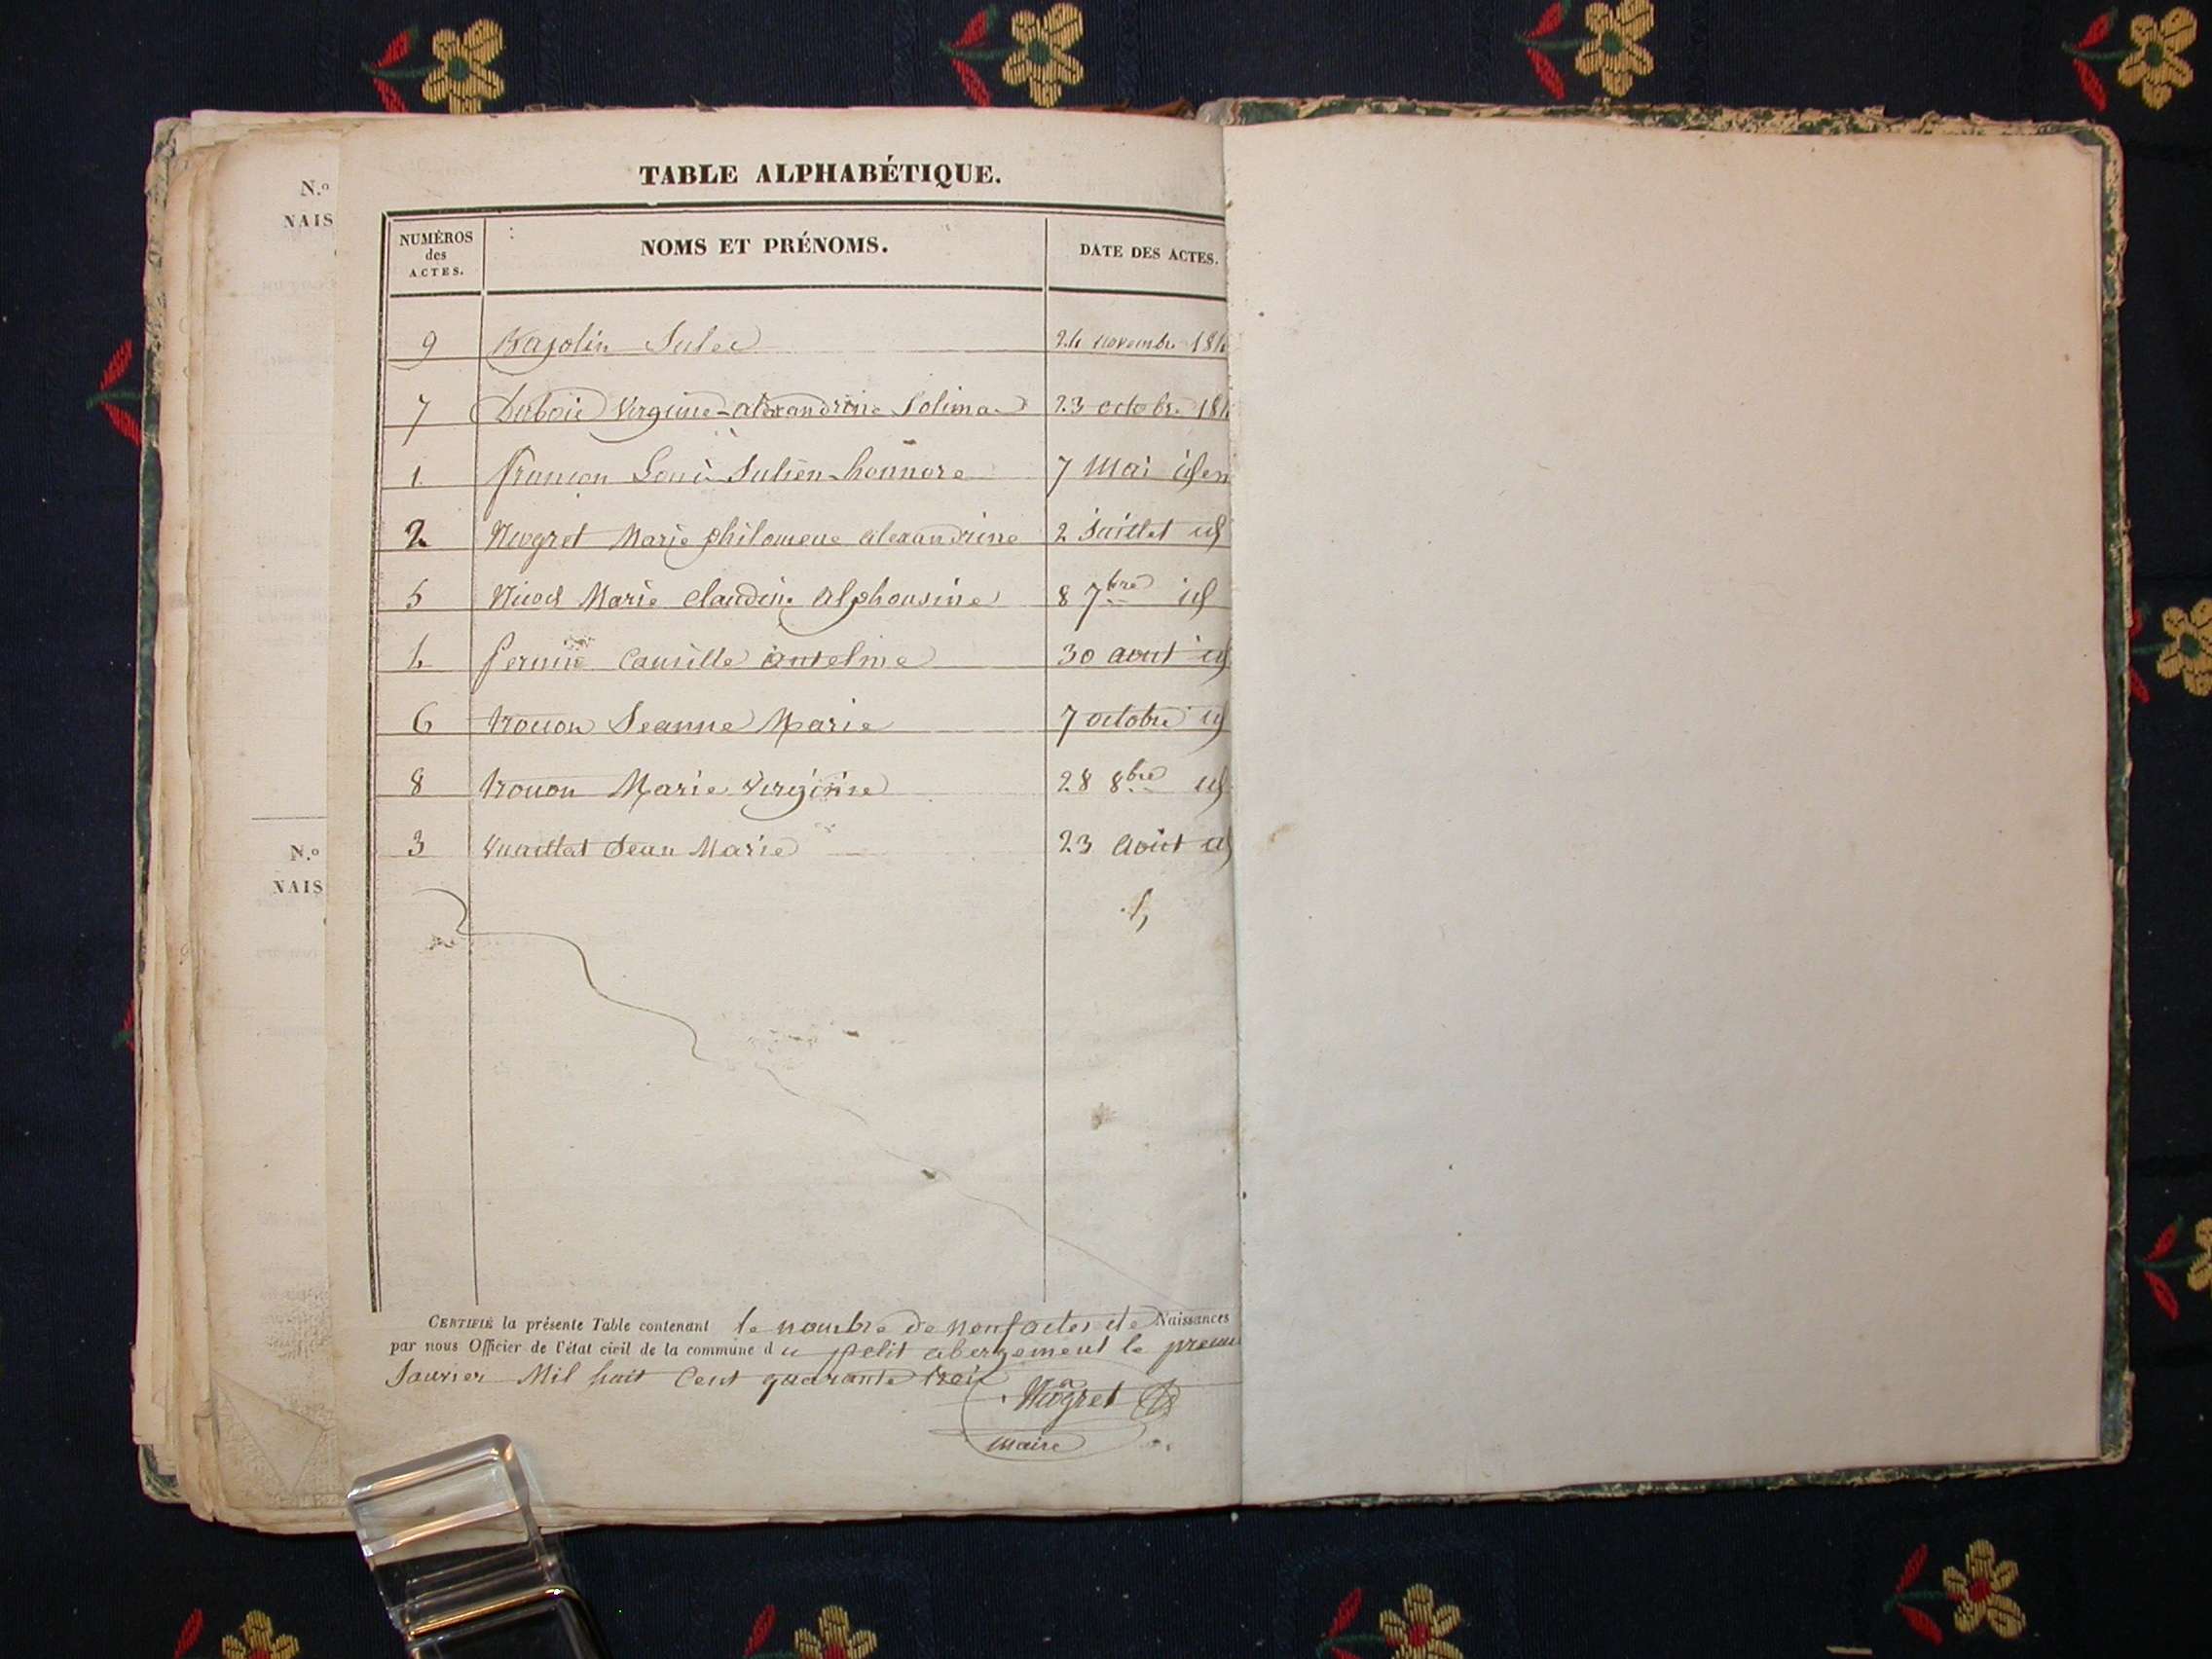 N.o
NAIS
TABLE ALPHABÉTIQUE.
NUMÉROS
des
ACTES.
NOMS ET PRÉNOMS.
DATE DES ACTES.
9 Jules 24 novembre 184
7 Dubois Virginie-alexandrine Solima 23 octobre 184
1. françon Louis Julien-honnore 7 Mai iden
2 Niogret Marie philomene alexandrine 2 Juillet id
5 Nicod Marie Claudine Alphonsine 8 7bre id
4 Camille antelme 30 aout id
6 trouon Jeanne Marie 7 octobre id
8 trouon Marie Virginie 28 8bre id
3 Vuaillat Jean Marie 23 Août id
N.o
NAIS
CERTIFIÉ la présente Table contenant le nombre de neuf actes de Naissances
par nous Officier de l'état civil de la commune du petit abergement le premi
Janvier Mil huit Cent quarante trois
Niogret
maire